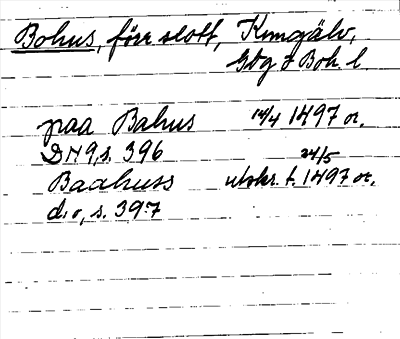 Bohus, förr slott, Kungälv,
Gbg o Boh. l.
paa Bahus 12/4 1497 or.
DN 9, s. 396
Baahuss utskr. t. 24/5 1497 or.
d:o, s. 397